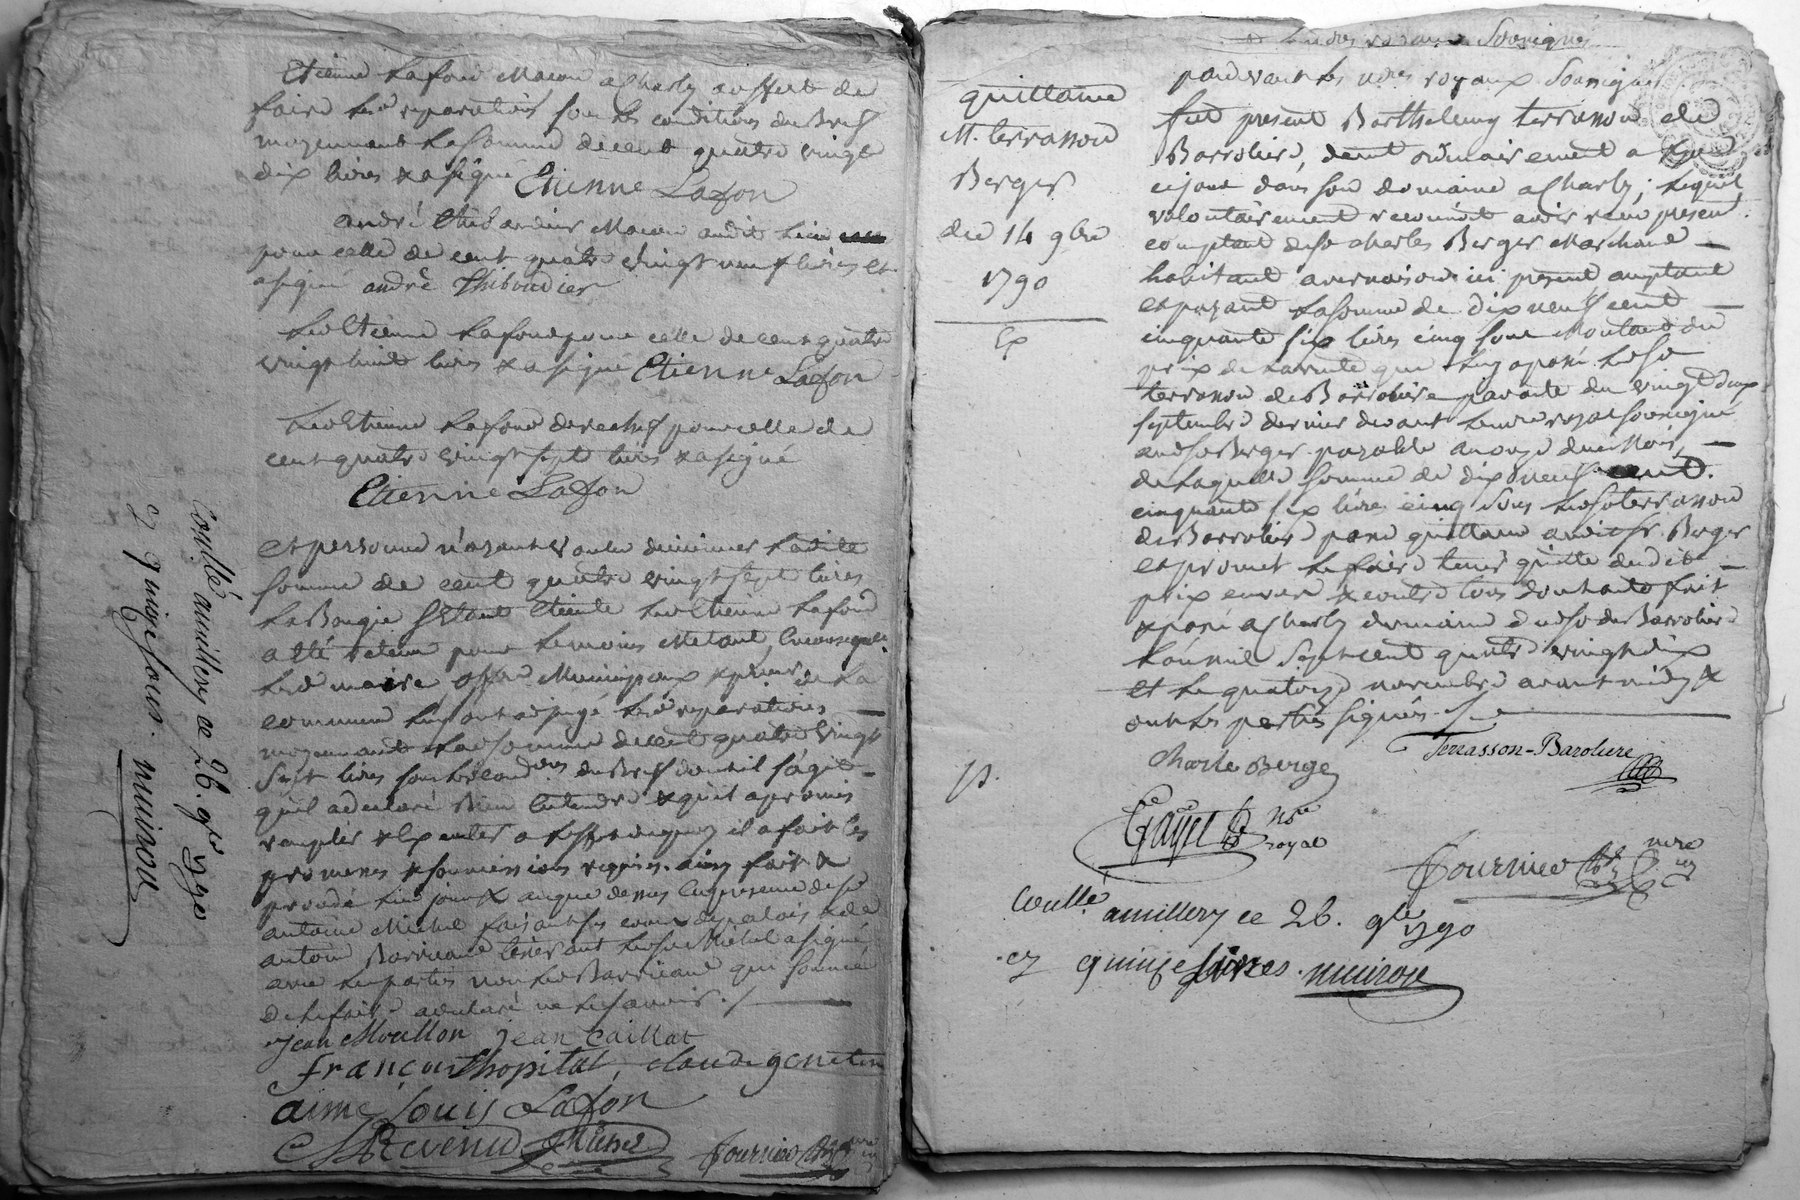 Etienne Lafond Macon a Charly a offert de
faire les reparations sous les conditions du Breff
moyennant la somme de cent quatre vingt
dix livres & a signé Etienne Lafon
andré thibaudier Macon audit lieu
pour celle de cent quatre vingt neuf livres et
a signé andrê Thiboudier
led Etienne Lafond pour celle de cent quatre
vingt huit livres & a signé Etienne Lafon
led Etienne Lafond derechef pour celle de
cent quatre vingt sept livres & a signé
Etienne Lafon
et personne n'ayant voulu diminuer ladite
somme de cent quatre vingt sept livres
la Bougie Etant Eteinte led Etienne Lafond
a Eté retenu pour le moins Metant, En consequence
led maire off. Municipaux & de la
commune luy ont adjugé les reparations
moyennant lad somme de cent quatre vingt
sept livres sous les conditions du Breff dont il s'agit
qu'il a declaré Bien Entendre & qu'il a promis
remplir & Executer a l'effet de quoy il a fait les
promesses & soumissions requises. ainsy fait &
procedé led jour & an que dessus En presence de sr
antoine Michel & de
antoine Barricand led sr Michel a signé
avec les parties non led Barricand qui sommé
de le faire a declaré ne le savoir. /
Jean Moullon jean Caillat
françois thopital, claude gonetin
aimé Louis Lafon
Revenu Fournier
Conllé a millery ce 26. 9bre 1790
quinze sous. muiron
quittance
M. terrasson
Berger
du 14 9bre
1790
Ex
nores royaux Sousignés
pardevant les nores royaux Sousignés
fut present Barthelemy terrasson de
Barroliere, demt ordinairement a Lyon
ce jour dans son domaine a Charly; lequel
volontairement reconnoit avoir reçu present
comptant de sr Charles Berger Marchand
habitant a vernaison ici present acceptant
et payant la somme de dix neuf cent
cinquante six livres cinq sous Montant du
prix de la vente que luy a passé led sr
terrasson de Barroliere par acte du vingt deux
septembre dernier devant leur royal soussigné
aud sr Berger payable au onze du Mois,
de laquelle somme de dix neuf cent
cinquante six livres cinq sous led sr terrasson
de Barroliere passe quittance audit sr Berger
et promet le faire tenir quitte dudit
prix envers & contre tous dont acte fait
& passé a Charly domaine dud sr de Barroliere
L'an mil sept cent quatre vingt dix
et le quatorze novembre avant midy &
ont les parties signés. /
Charle Berge Terrasson-Baroliere
Gayet nore
royal
Fournier nore
Conllé a millery ce 26. 9bre 1790
quinze livres. muiron